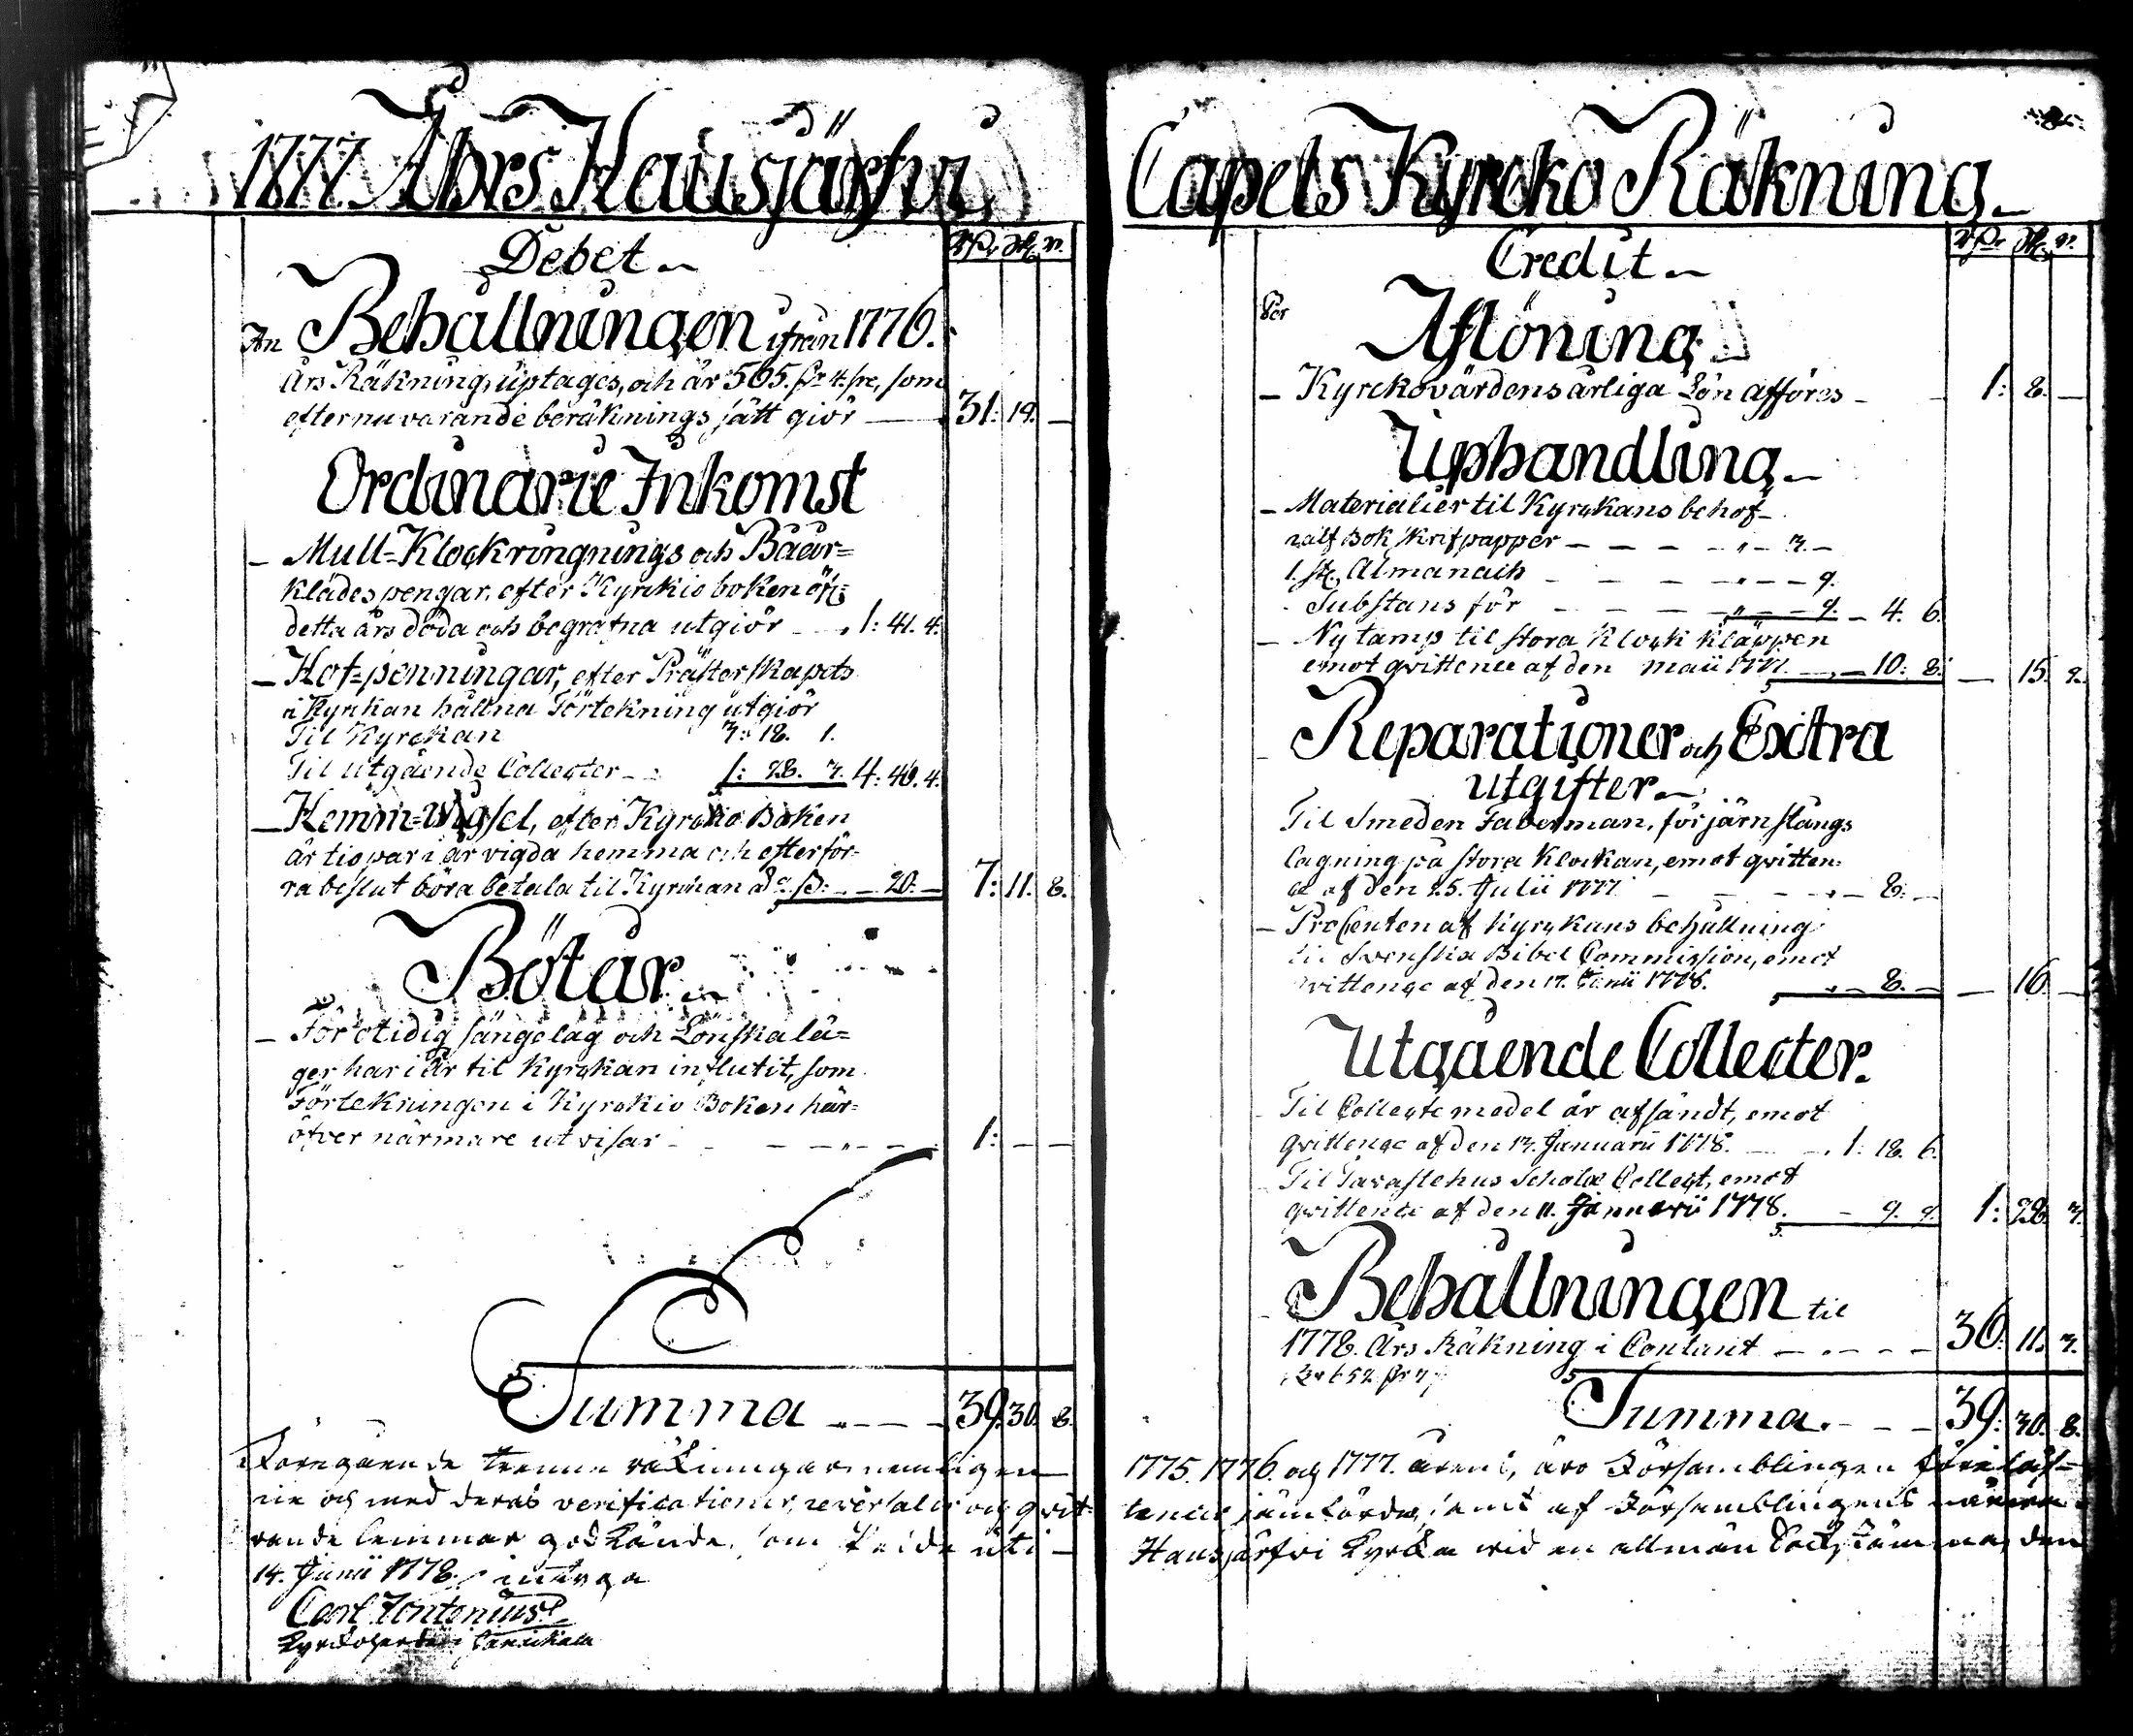 1777. Åhrs Hausjärfvi
Debet
An Behållningen ifrån 1776.
Års Räkning uptages, och är 565. 4. som
efter nuvarande beräknings sätt giör — 31: 19. —
Ordinarie Inkomst
– Mull-Klockringnings och Båår-
klädes pengar, efter Kyrckio boken öfver
detta års döda och begrafna utgiör – 1: 41. 4.
– Hof-penningar, efter Prästerskapets
i Kyrckan hållna Förtekning utgiör
Til Kyrckan 3: 12. 1.
Til utgående Collecter – 1: 28. 3. 4: 40. 4.
– Hemm-Wigsel, efter Kyrckio Boken
är tio par i år vigda hemma och efter för-
ra beslut böra betala til Kyrckan – – 20: – 7: 11. 8.
Böter
– För otidig sängelag och Lönskalä-
ger har i år til Kyrckan influtit, som
Förtekningen i Kyrckio Boken här-
öfver närmare utvisar – – – – 1: – –
Summa – – – 39. 30. 8.
Föregående trenne räkningar nemligen
ne och med deras verificationer, reversaler och qvit-
rande lemmar godkände, som skedde uti
14. Junii 1778. intyga
Carl Fontenius
Kyrckoherde i Janackala
Capels Kyrcko Räkning
Credit
Per
Aflöning
– Kyrckovärdens årliga Lön afföres – 1: 8. –
Uphandling
– Materialier til Kyrckans behof
1. half Bok skrifpapper – – – – „ – 3. –
1. st. Almanach – – – – „ – – 9.
Substans för – – – „ – – 9. – 4. 6.
– Ny tamp til stora Klock kläppen
emot qvittence af den maii 1777. – – 10: 8. — 15. 2.
– Reparationer och Extra
utgifter
Til Smeden Faberman, för järnstångs
lagning på stora Klockan, emot qvitten-
ce af den 25. Julii 1777 – – – – 8: –
– ProCenten af Kyrckans behållning
til Svenska Bibel Commission, emot
qvittence af den 17. Junii 1778. „ – 8. – — 16. —
Utgående Collecter.
– Til Collecte medel är afsändt, emot
qvittence af den 13. Januarii 1778. – 1: 18. 6.
– Til Tavastehus Schola Collect, emot
qvittence af den 11. Januarii 1778. – 9. 9. 1: 28. 3.
– Behållningen til
1778. Års Räkning i Contant – – – – 36: 11. 3.
Summa. – – – 39: 30. 8.
1775. 1776. och 1777. årens, äro Församblingen föreläs-
tencer jämförde, samt af Församblingens närva-
Hausjärfvi Kyrcka wid en allmän Sockenstämma den